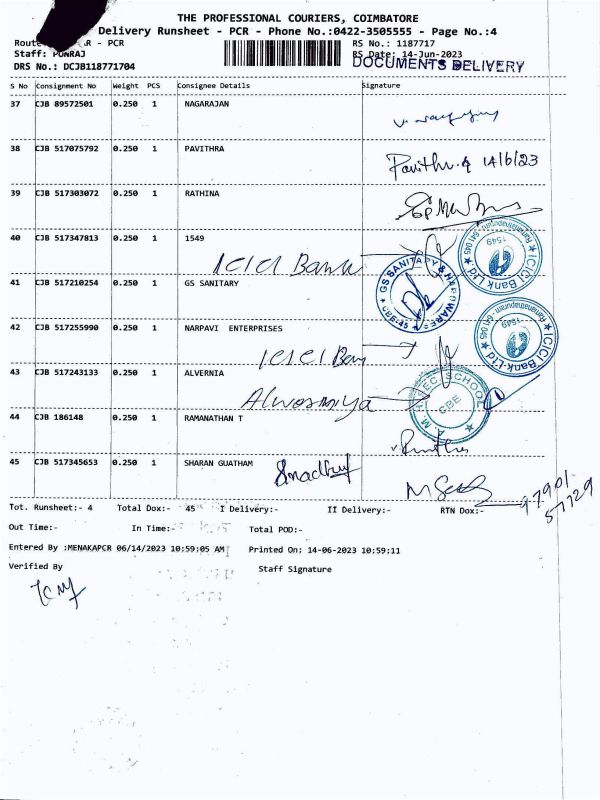 THE PROFESSIONAL COURIERS, COIMBATORE
Delivery Runsheet - PCR - Phone No.:0422-3505555 - Page No.:4
Route: R - PCR
RS No.: 1187717
Staff: PONRAJ
RS Date: 14-Jun-2023
DRS No.: DCJB118771704
DOCUMENTS DELIVERY
S No Consignment No Weight PCS Consignee Details Signature
37 CJB 89572501 0.250 1 NAGARAJAN
38 CJB 517075792 0.250 1 PAVITHRA
Pavithra 14/6/23
39 CJB 517303072 0.250 1 RATHINA
40 CJB 517347813 0.250 1 1549
ICICI Bank
ICICI Bank Ltd Ramanathapuram - 641 045 1549
41 CJB 517210254 0.250 1 GS SANITARY
GS SANITARY & HARDWARES CBE-45
42 CJB 517255990 0.250 1 NARPAVI ENTERPRISES
ICICI Ban
ICICI Bank Ltd Ramanathapuram - 641 045 1549
43 CJB 517243133 0.250 1 ALVERNIA
SCHOOL CBE
44 CJB 186148 0.250 1 RAMANATHAN T
45 CJB 517345653 0.250 1 SHARAN GUATHAM
97901
57729
Tot. Runsheet:- 4 Total Dox:- 45 I Delivery:- II Delivery:- RTN Dox:-
Out Time:- In Time:- Total POD:-
Entered By :MENAKAPCR 06/14/2023 10:59:05 AM Printed On: 14-06-2023 10:59:11
Verified By Staff Signature